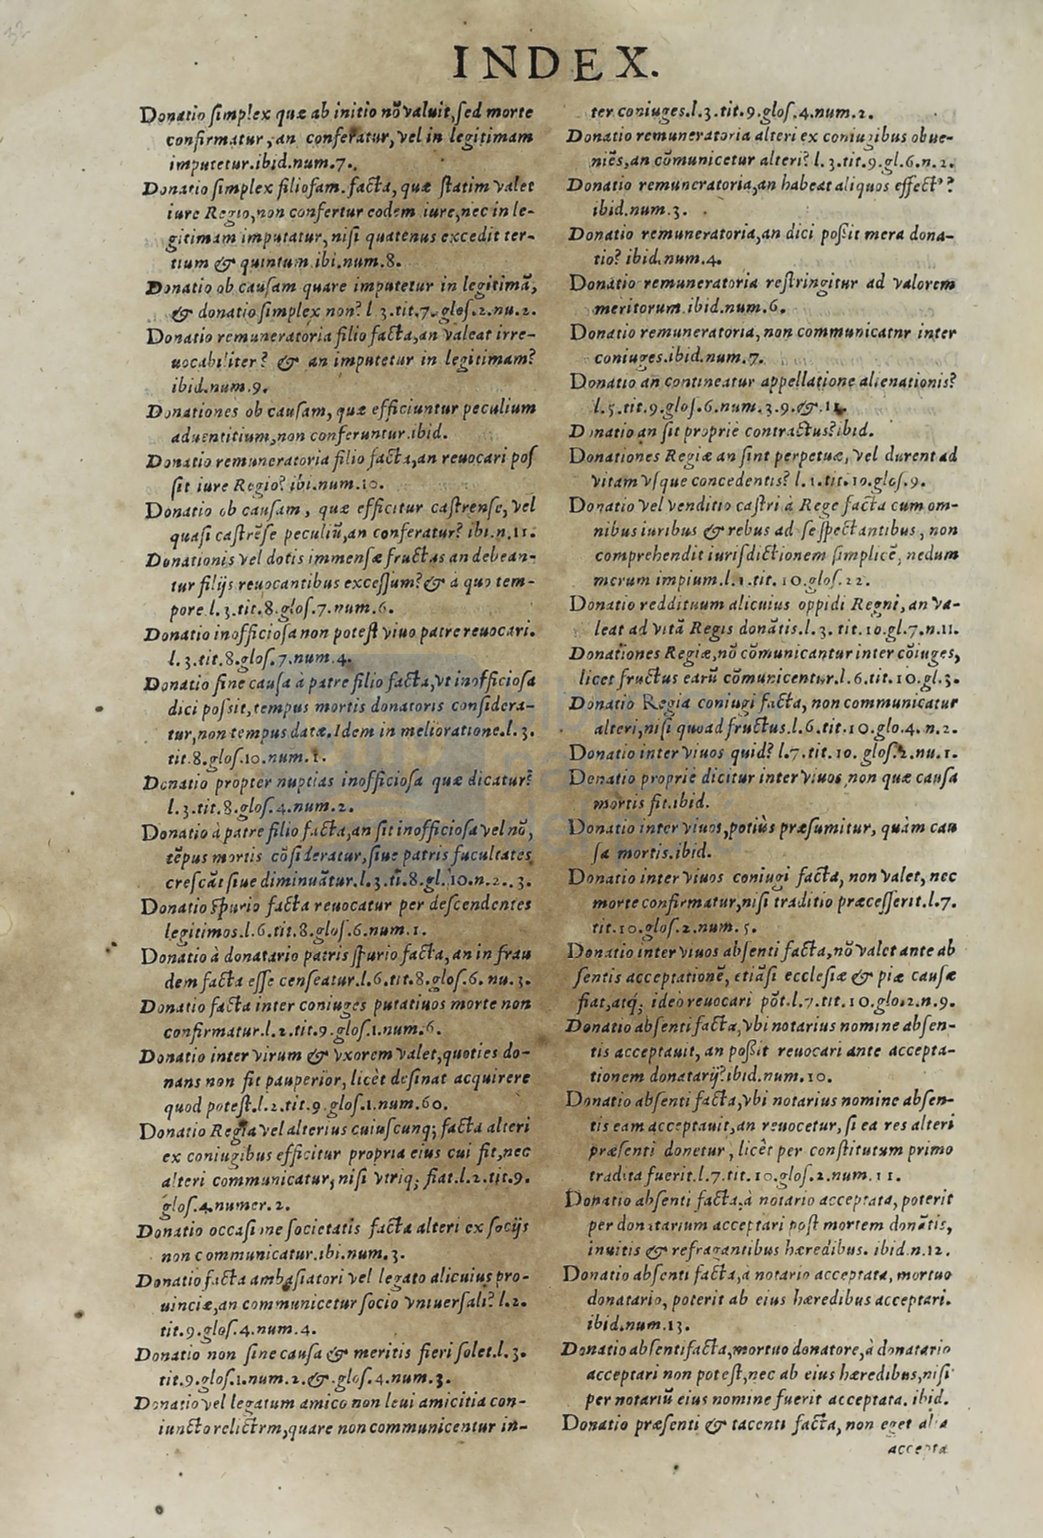 INDEX.
Donatio ſimplex quæ ab initio nõ valuit, ſed morte
confirmatur, an conferatur, vel in legitimam
imputetur. ibid. num. 7.
Donatio ſimplex filiofam. facta, quæ ſtatim valet
iure Regio, non confertur eodem iure, nec in le-
gitimam imputatur, niſi quatenus excedit ter-
tium & quintum. ibi. num. 8.
Donatio ob cauſam quare imputetur in legitimã,
& donatio ſimplex non? l 3. tit. 7. gloſ. 2. nu. 2.
Donatio remuneratoria filio facta, an valeat irre-
uocabiliter? & an imputetur in legitimam?
ibid. num. 9.
Donationes ob cauſam, quæ efficiuntur peculium
aduentitium, non conferuntur. ibid.
Donatio remuneratoria filio facta, an reuocari poſ
ſit iure Regio? ibi. num. 10.
Donatio ob cauſam, quæ efficitur caſtrenſe, vel
quaſi caſtrẽſe peculiũ, an conferatur? ibi. n. 11.
Donationis vel dotis immenſæ fructus an debean-
tur filijs reuocantibus exceſſum? & à quo tem-
pore. l. 3. tit. 8. gloſ. 7. num. 6.
Donatio inofficioſa non poteſt viuo patre reuocari.
l. 3. tit. 8. gloſ. 7. num. 4.
Donatio ſine cauſa à patre filio facta, vt inofficioſa
dici poſsit, tempus mortis donatoris conſidera-
tur, non tempus datæ. Idem in melioratione. l. 3.
tit. 8. gloſ. 10. num. 1.
Donatio propter nuptias inofficioſa quæ dicatur?
l. 3. tit. 8. gloſ. 4. num. 2.
Donatio à patre filio facta, an ſit inofficioſa vel nõ,
tẽpus mortis cõſideratur, ſiue patris facultates
creſcãt ſiue diminuãtur. l. 3. ti. 8. gl. 10. n. 2. . 3.
Donatio ſpurio facta reuocatur per deſcendentes
legitimos. l. 6. tit. 8. gloſ. 6. num. 1.
Donatio à donatario patris ſpurio facta, an in frau
dem facta eſſe cenſeatur. l. 6. tit. 8. gloſ. 6. nu. 3.
Donatio facta inter coniuges putatiuos morte non
confirmatur. l. 2. tit. 9. gloſ. 1. num. 6.
Donatio inter virum & vxorem valet, quoties do-
nans non fit pauperior, licèt deſinat acquirere
quod poteſt. l. 2. tit. 9. gloſ. 1. num. 60.
Donatio Regia vel alterius cuiuſcunq; facta alteri
ex coniugibus efficitur propria eius cui fit, nec
alteri communicatur, niſi vtriq; fiat. l. 2. tit. 9.
gloſ. 4. numer. 2.
Donatio occaſione ſocietatis facta alteri ex ſocijs
non communicatur. ibi. num. 3.
Donatio facta ambaſiatori vel legato alicuius pro-
uinciæ, an communicetur ſocio vniuerſali? l. 2.
tit. 9. gloſ. 4. num. 4.
Donatio non ſine cauſa & meritis fieri ſolet. l. 3.
tit. 9. gloſ. 1. num. 2. & . gloſ. 4. num. 3.
Donatio vel legatum amico non leui amicitia con-
iuncto relictrm, quare non communicentur in-
ter coniuges. l. 3. tit. 9. gloſ. 4. num. 2.
Donatio remuneratoria alteri ex coniugibus obue-
niẽs, an cõmunicetur alteri? l. 3. tit. 9. gl. 6. n. 2.
Donatio remuneratoria, an habeat aliquos effect'?
ibid. num. 3.
Donatio remuneratoria, an dici poſsit mera dona-
tio? ibid. num. 4.
Donatio remuneratoria reſtringitur ad valorem
meritorum. ibid. num. 6.
Donatio remuneratoria, non communicatnr inter
coniuges. ibid. num. 7.
Donatio an contineatur appellatione alienationis?
l. 5. tit. 9. gloſ. 6. num. 3. 9. & . 11.
Donatio an ſit propriè contractus? ibid.
Donationes Regiæ an ſint perpetuæ, vel durent ad
vitam vſque concedentis? l. 1. tit. 10. gloſ. 9.
Donatio vel venditio caſtri à Rege facta cum om-
nibus iuribus & rebus ad ſe ſpectantibus, non
comprehendit iuriſdictionem ſimplicẽ, nedum
merum impium. l. 1. tit. 10. gloſ. 22.
Donatio reddituum alicuius oppidi Regni, an va-
leat ad vitã Regis donãtis. l. 3. tit. 10. gl. 7. n. 11.
Donationes Regiæ, nõ cõmunicantur inter cõiuges,
licet fructus earũ cõmunicentur. l. 6. tit. 10. gl. 3.
Donatio Regia coniugi facta, non communicatur
alteri, niſi quoad fructus. l. 6. tit. 10. glo. 4. n. 2.
Donatio inter viuos quid? l. 7. tit. 10. gloſ. 2. nu. 1.
Donatio propriè dicitur inter viuos, non quæ cauſa
mortis fit. ibid.
Donatio inter viuos, potiùs præſumitur, quàm cau
ſa mortis. ibid.
Donatio inter viuos coniugi facta, non valet, nec
morte confirmatur, niſi traditio præceſſerit. l. 7.
tit. 10. gloſ. 2. num. 5.
Donatio inter viuos abſenti facta, nõ valet ante ab
ſentis acceptationẽ, etiãſi eccleſiæ & piæ cauſæ
fiat, atq; ideò reuocari põt. l. 7. tit. 10. glo. 2. n. 9.
Donatio abſenti facta, vbi notarius nomine abſen-
tis acceptauit, an poſsit reuocari ante accepta-
tionem donatarij? ibid. num. 10.
Donatio abſenti facta, vbi notarius nomine abſen-
tis eam acceptauit, an reuocetur, ſi ea res alteri
præſenti donetur, licèt per conſtitutum primo
tradita fuerit. l. 7. tit. 10. gloſ. 2. num. 11.
Donatio abſenti facta, à notario acceptata, poterit
per donatarium acceptari poſt mortem donãtis,
inuitis & refragantibus hæredibus. ibid. n. 12.
Donatio abſenti facta, à notario acceptata, mortuo
donatario, poterit ab eius hæredibus acceptari.
ibid. num. 13.
Donatio abſenti facta, mortuo donatore, à donatario
acceptari non poteſt, nec ab eius hæredibus, niſi
per notariũ eius nomine fuerit acceptata. ibid.
Donatio præſenti & tacenti facta, non eget alia
accepta